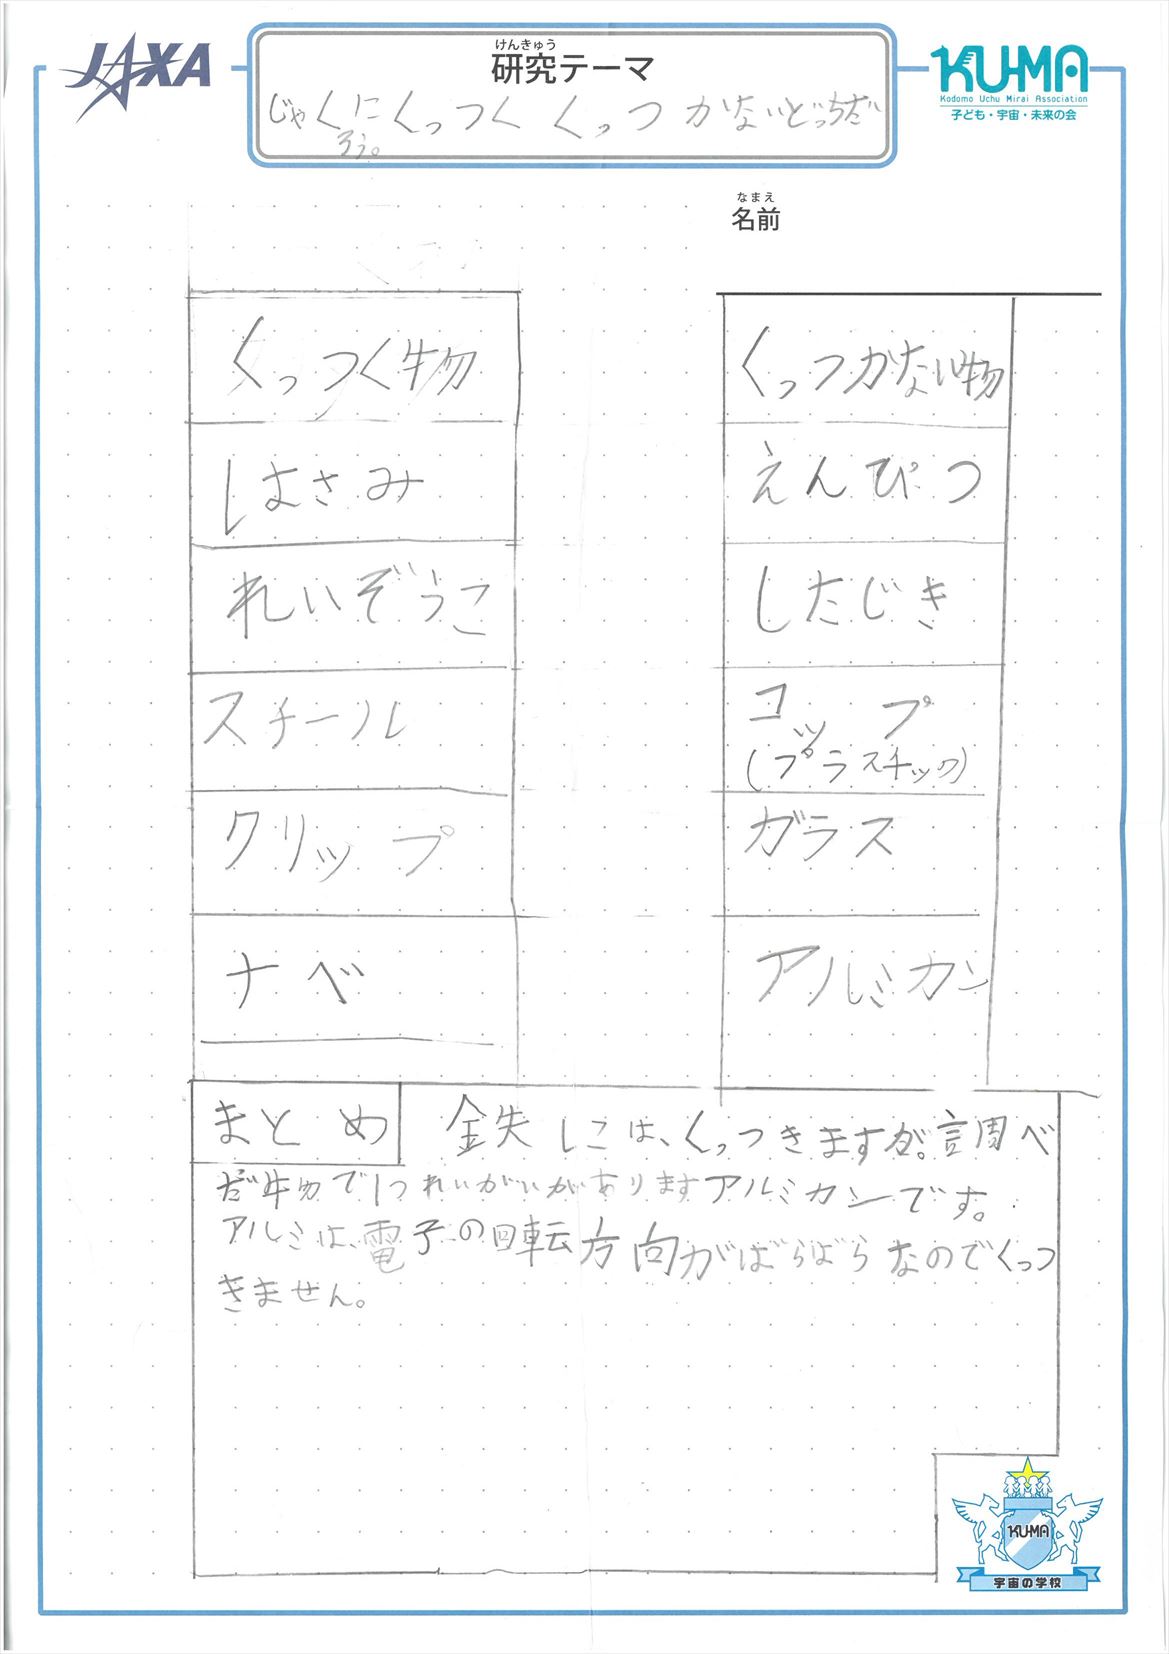 JAXA
けんきゅう
研究テーマ
じゃくにくっつくくっつかないどっちだ
ろう。
KU-MA
Kodomo Uchu Mirai Association
子ども・宇宙・未来の会
なまえ
名前
くっつく物
はさみ
れいぞうこ
スチール
クリップ
ナベ
くっつかない物
えんぴつ
したじき
コップ
(プラスチック)
ガラス
アルミカン
まとめ
鉄には、くっつきますが。調べ
た物で1つれいがいがありますアルミカンです。
アルミは、電子の回転方向がばらばらなのでくっつ
きません。
KU-MA
宇宙の学校